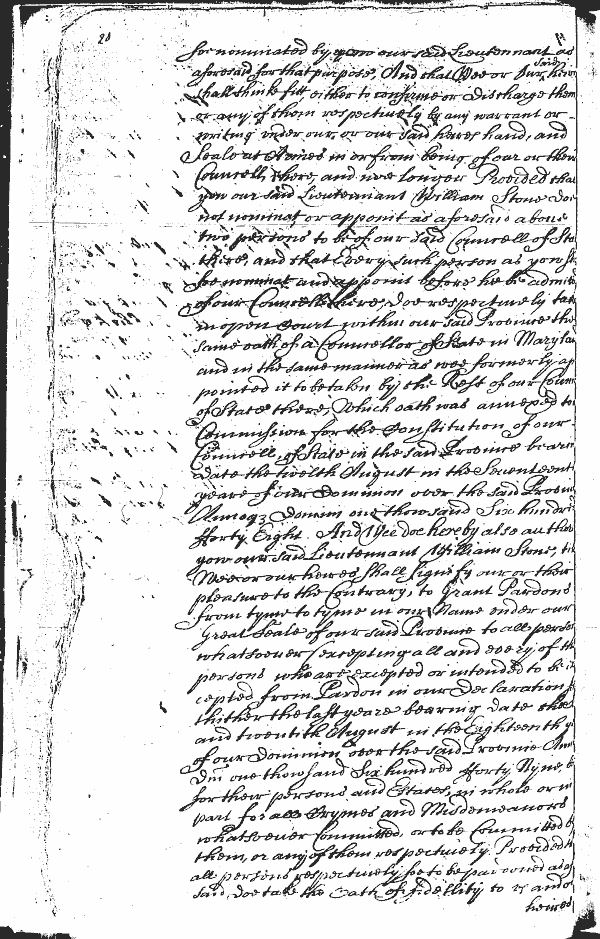 20
soe nominated by yow our said Lieutennant as
aforesaid for that purpose, And that Wee or Our said heires
shall thinke fitt either to confirme or discharge them
or any of them respectively by any warrant or
writing under our or our said heires hand, and
Seale at Armes in or from being of our or their
Councell there, and noe longer Provided that
you our said Lieutennant William Stone doe
not nominat or appoint as aforesaid above
two persons to be of our said Councell of Sta
there, and that Every such person as yow sh
soe nominat and appoint before he be admitt
of our Councell there, doe respectively take
in open Court within our said Province the
same oath of a Councellor of State in Maryla
and in the same manner as wee formerly ap
pointed it to be taken by the Rest of our Coun
of State there, Which oath was annexed to
Commission for the Constitution of our
Councell of State in the said Province beari
date the twelth August in the Seventeent
yeare of our Dominion over the said Provin
Annoq3 Domini one thowsand Six hundred
fforty Eight. And Wee doe hereby also autho
yow our said Lieutennant William Stone, til
Wee or our heires shall signify our or their
pleasure to the Contrary, to Grant Pardons
from tyme to tyme in our Name under our
Great Seale of our said Province to all perso
whatsoever (excepting all and every of th
persons who are excepted or intended to be ex
cepted from Pardon in our Declaration s
thither the last yeare bearing date the
and twentith August in the Eighteenth y
of our Dominion over the said Province Ann
Dm̃ one thowsand Six hundred fforty Nyne, &
for their persons and Estates, in whole or in
part for all Crymes and Misdemeanors
whatsoever Committed, or to be Committed b
them, or any of them respectively. Provided t
all persons respectively soe to be pardoned as a
said, doe take the Oath of fidellity to us and o
heires